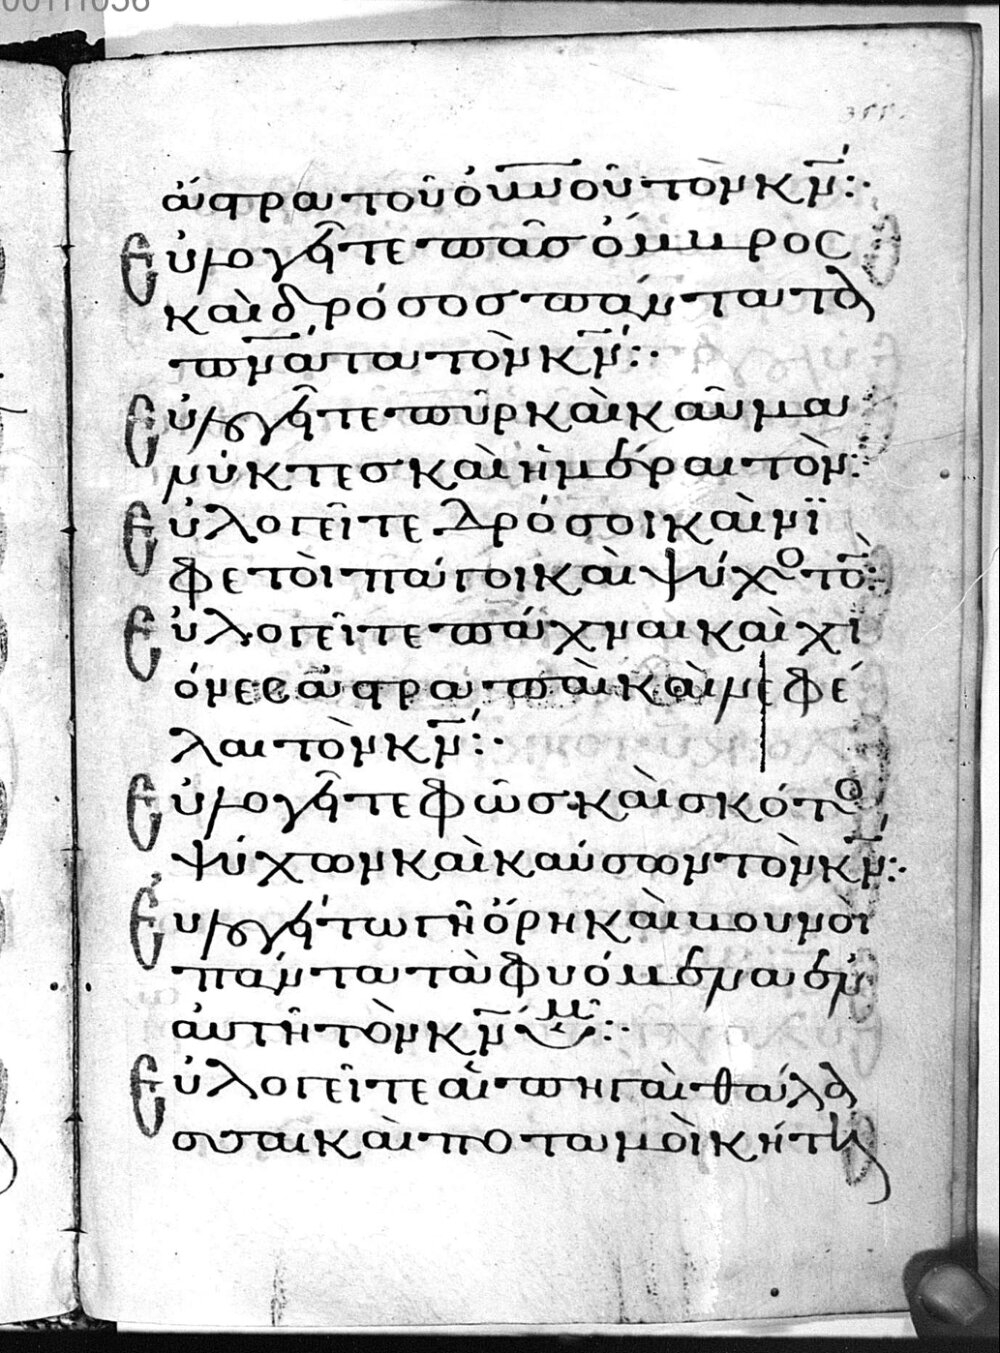 00111036
άστρα τοῦ οὐνοῦ τὸν κ̅ν̅:·
Εὐλογῆτε πᾶσ ὄμβρος
καὶ δρόσοσ πάντα τὰ
πν̅ᾱτα τὸν κ̅ν̅:·
Εὐλογῆτε πῦρ καὶ καῦμα
νύκτεσ καὶ ἡμέραι τὸν:
Εὐλογεῖτε δρόσοι καὶ νϊ
φετὸι πάγοι καὶ ψύχο τὸ:
Εὐλογεῖτε πάχναι καὶ χι
όνες ἀστραπαὶ καὶ νεφέ
λαι τὸν κ̅ν̅:·
Εὐλογῆτε φῶσ καὶ σκότο
ψύχων καὶ καύσων τὸν κ̅ν̅:·
Εὐλογήτω γῆ ὄρη καὶ βουνοὶ
πάντα τὰ φυόμενα ἐν
αὐτῆ τὸν κ̅ν̅ ὑμ:·
Εὐλογεῖτε αἱ πηγαὶ θάλα
σσαι καὶ ποταμοὶ κήτη